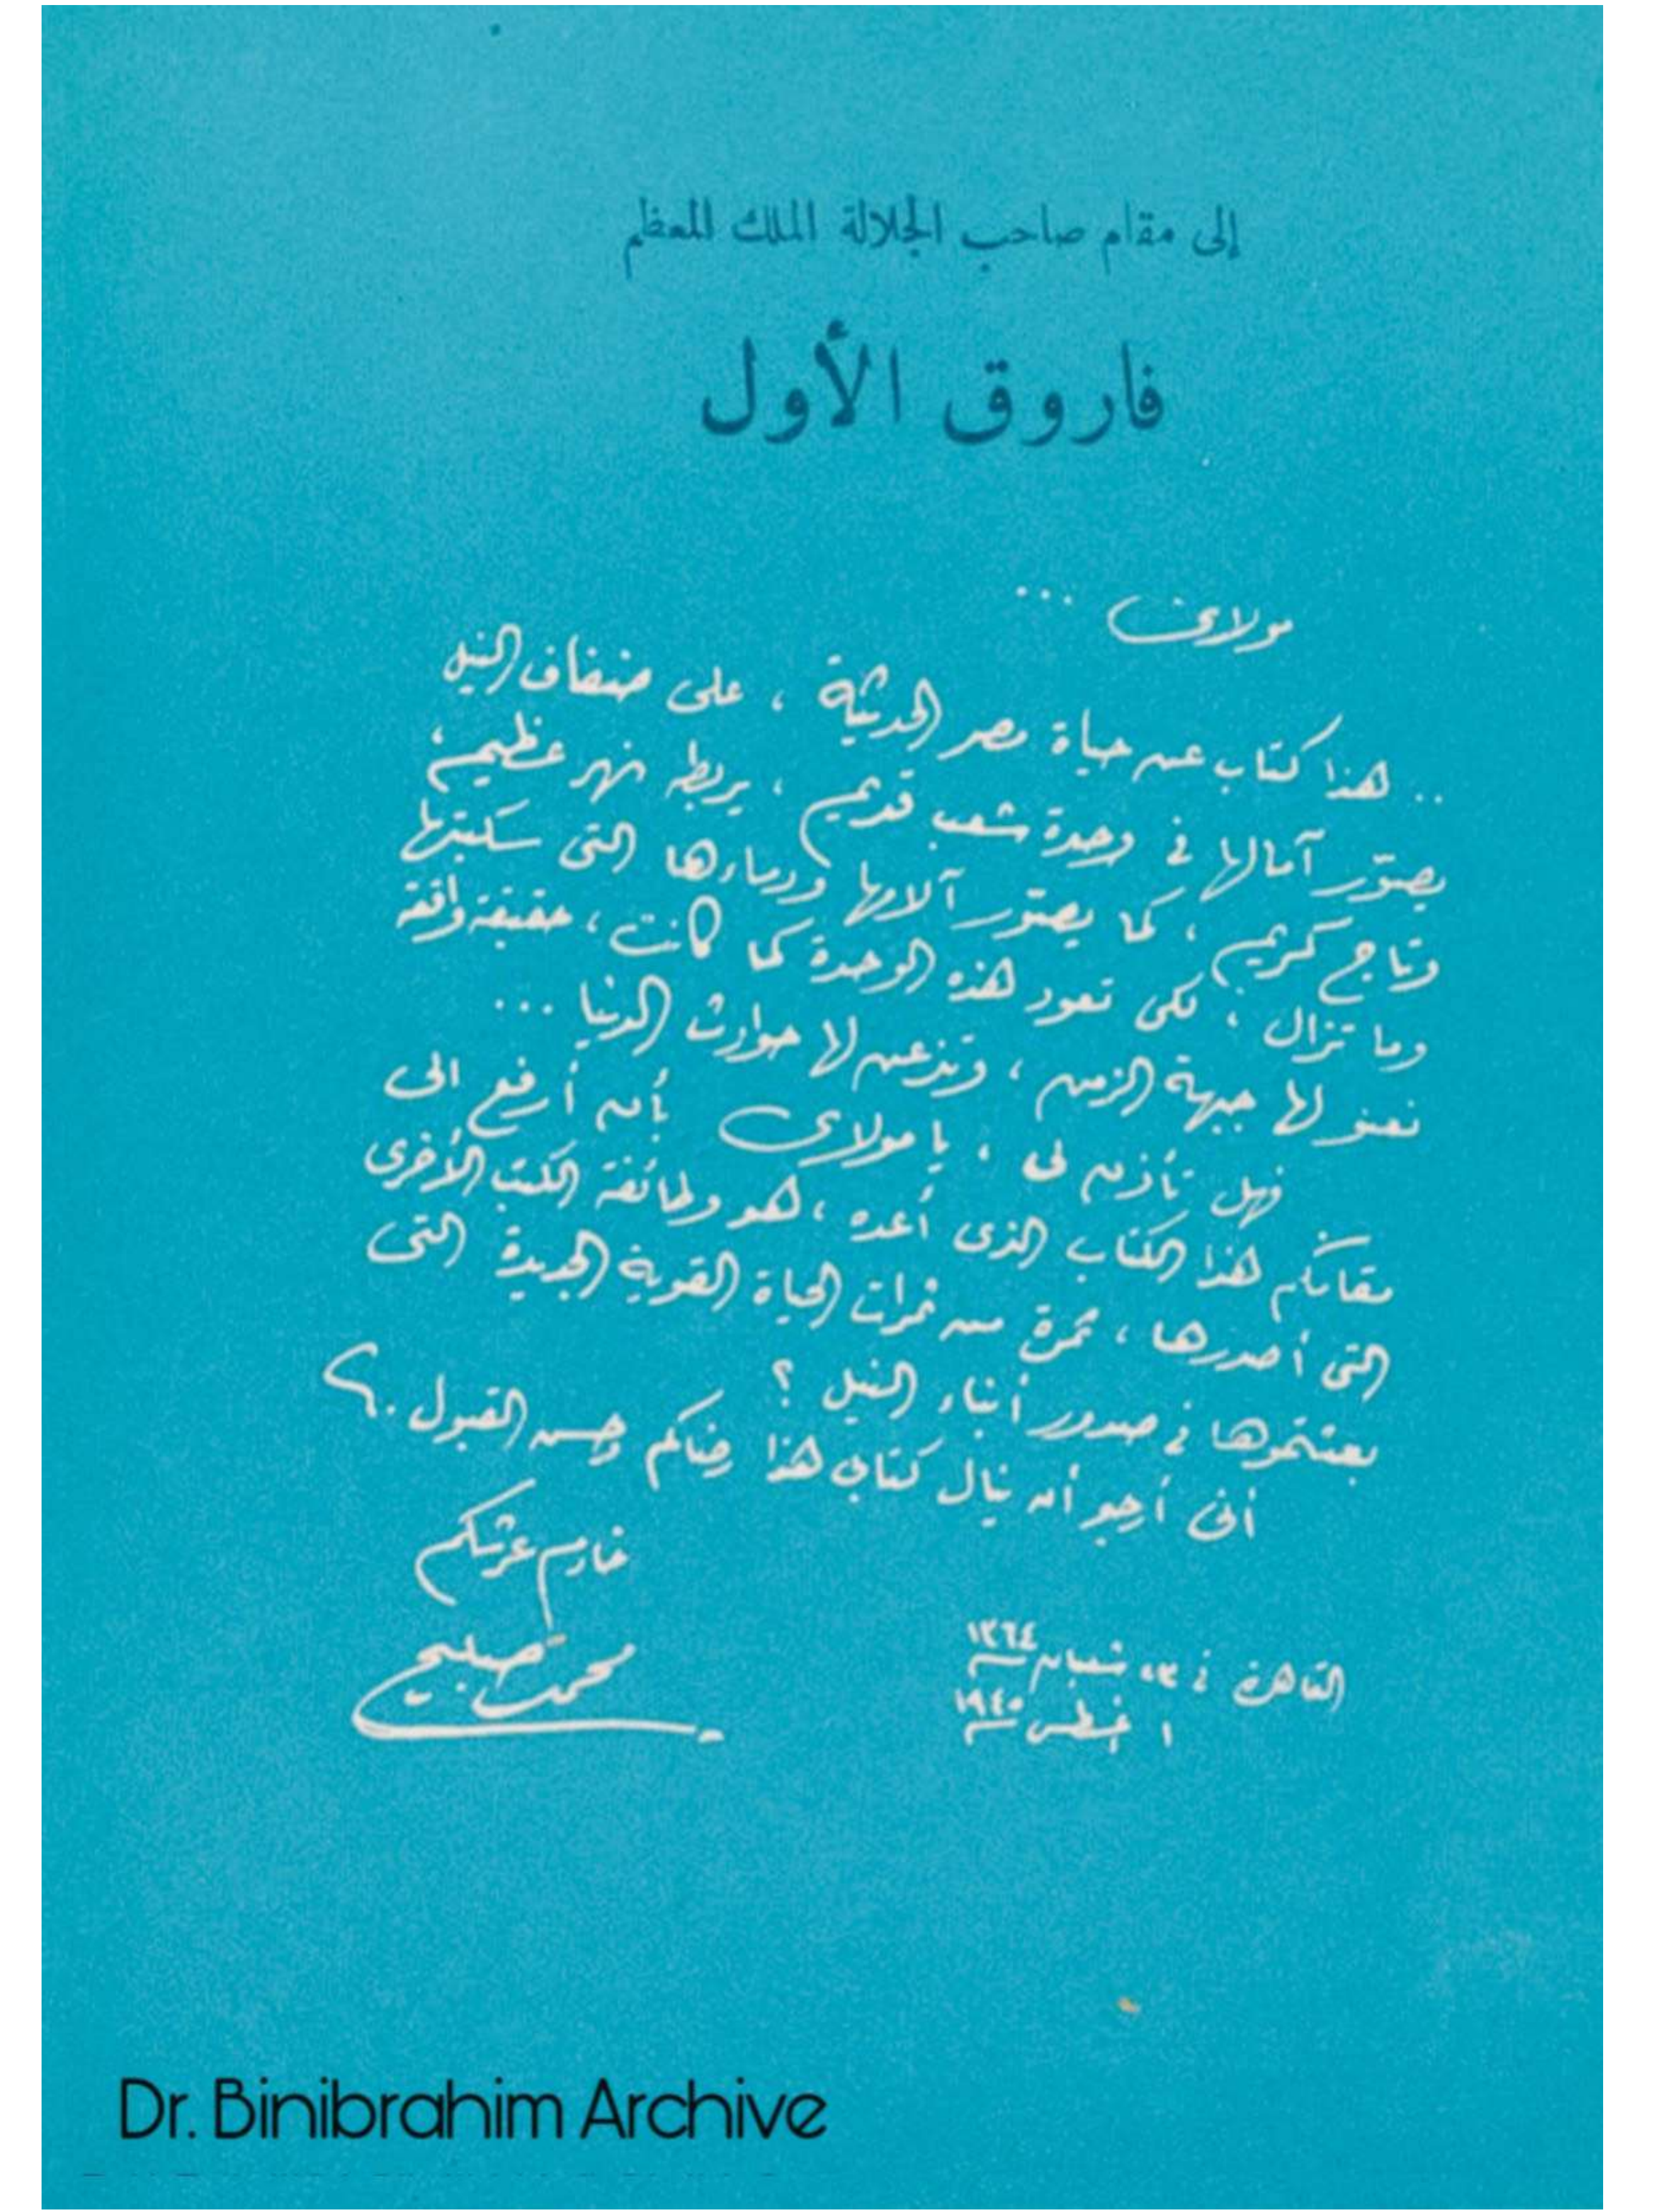 إلى مقام صاحب الجلالة الملك المعظم
فاروق الأول
مولاى ...
.. هذا كتاب عن حياة مصر الحديثة ، على ضفاف النيل
يصوّر آمالها في وحدة شعب قديم ، يربطه نهر عظيم ،
وتاج كريم ، كما يصوّر آلامها ودماءها التى سكبتها
وما تزال ، لكى تعود هذه الوحدة كما كانت ، حقيقة واقعة
تعنو لها جبهة الزمن ، وتذعن لها حوادث الدنيا ...
فهل تأذن لى ، يا مولاى بأن أرفع الى
مقامكم هذا الكتاب الذى أعده ، هو وطائفة الكتب الأخرى
التى أصدرها ، ثمرة من ثمرات الحياة القوية الجديدة التى
بعثتموها في صدور أبناء النيل ؟
أنى أرجو أن ينال كتابى هذا رضاكم وحسن القبول .
خادم عرشكم
محمد صبيح
القاهرة في شعبان ١٣٦٤
١ أغسطس ١٩٤٥
Dr. Binibrahim Archive